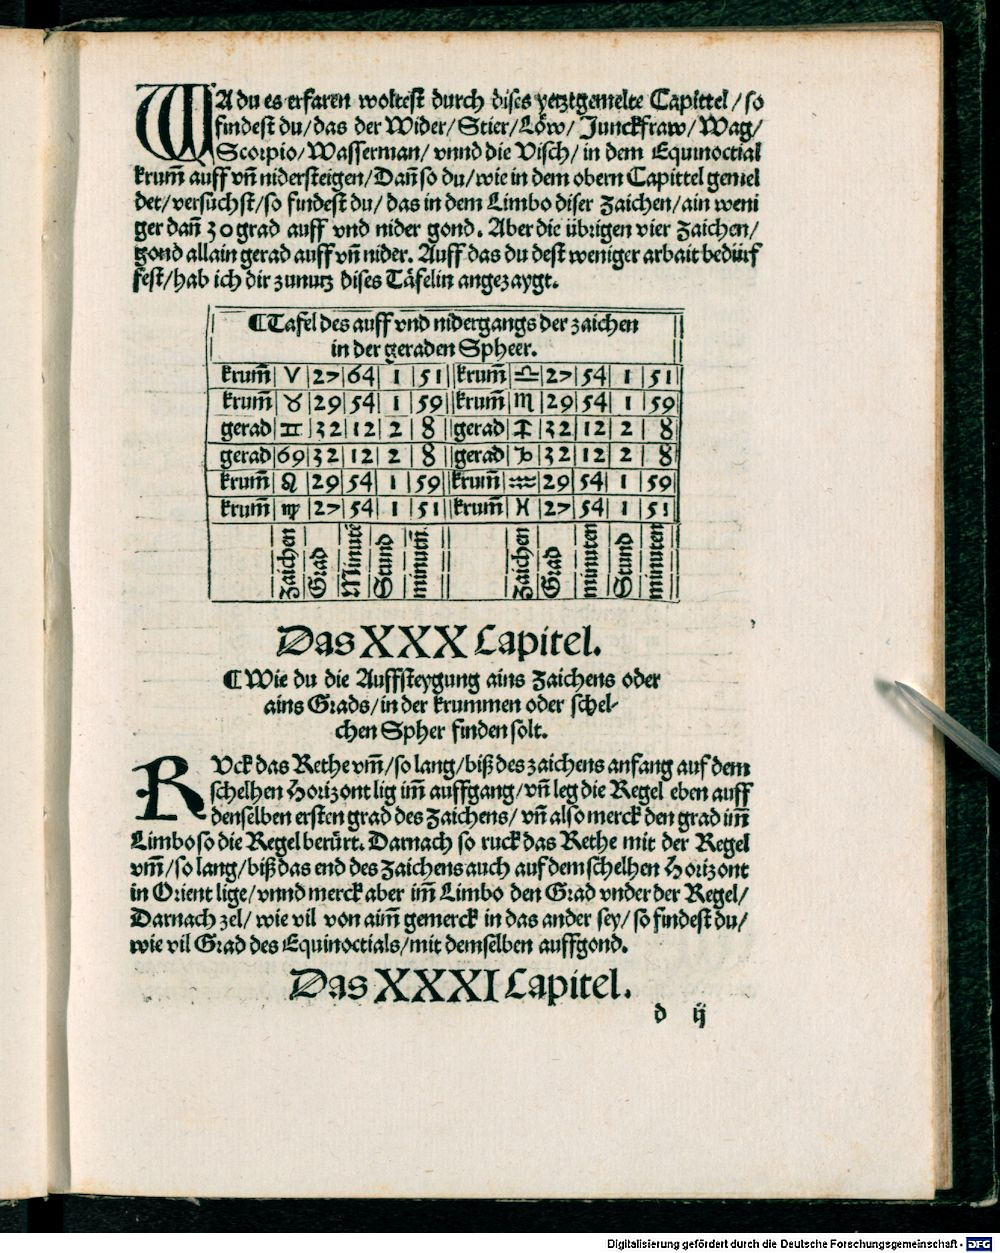 WA du es erfaren woltest durch dises yetztgemelte Capittel / so
findest du / das der Wider / Stier / Löw / Junckfraw / Wag /
Scorpio / Wasserman / vnnd die Visch / in dem Equinoctial
krum̄ auff vn̄ nidersteigen / Dan̄ so du / wie in dem obern Capittel gemel
det / versuchst / so findest du / das in dem Limbo diser Zaichen / ain weni
ger dan̄ 30 grad auff vnd nider gond. Aber die übrigen vier Zaichen /
gond allain gerad auff vn̄ nider. Auff das du dest weniger arbait bedürf
fest / hab ich dir zu nutz dises Täfelin angezaygt.
¶Tafel des auff vnd nidergangs der zaichen
in der geraden Spheer.
krum̄ ♈ 27 64 1 51 krum̄ ♎ 27 54 1 51
krum̄ ♉ 29 54 1 59 krum̄ ♏ 29 54 1 59
gerad ♊ 32 12 2 8 gerad ♐ 32 12 2 8
gerad 69 32 12 2 8 gerad ♑ 32 12 2 8
krum̄ ♌ 29 54 1 59 krum̄ ♒ 29 54 1 59
krum̄ ♍ 27 54 1 51 krum̄ ♓ 27 54 1 51
Zaichen Grad Minutē Stund minutn̄ Zaichen Grad minuten Stund minuten
Das XXX Capitel.
¶Wie du die Auffsteygung ains Zaichens oder
ains Grads / in der krummen oder schel-
chen Spher finden solt.
RVck das Rethe vm̄ / so lang / biß des zaichens anfang auf dem
schelhen Horizont lig im̄ auffgang / vn̄ leg die Regel eben auff
denselben ersten grad des Zaichens / vn̄ also merck den grad im̄
Limbo so die Regel berürt. Darnach so ruck das Rethe mit der Regel
vm̄ / so lang / biß das end des Zaichens auch auf dem schelhen Horizont
in Orient lige / vnnd merck aber im̄ Limbo den Grad vnder der Regel /
Darnach zel / wie vil von aim̄ gemerck in das ander sey / so findest du /
wie vil Grad des Equinoctials / mit demselben auffgond.
Das XXXI Capitel.
d ij
Digitalisierung gefördert durch die Deutsche Forschungsgemeinschaft - DFG